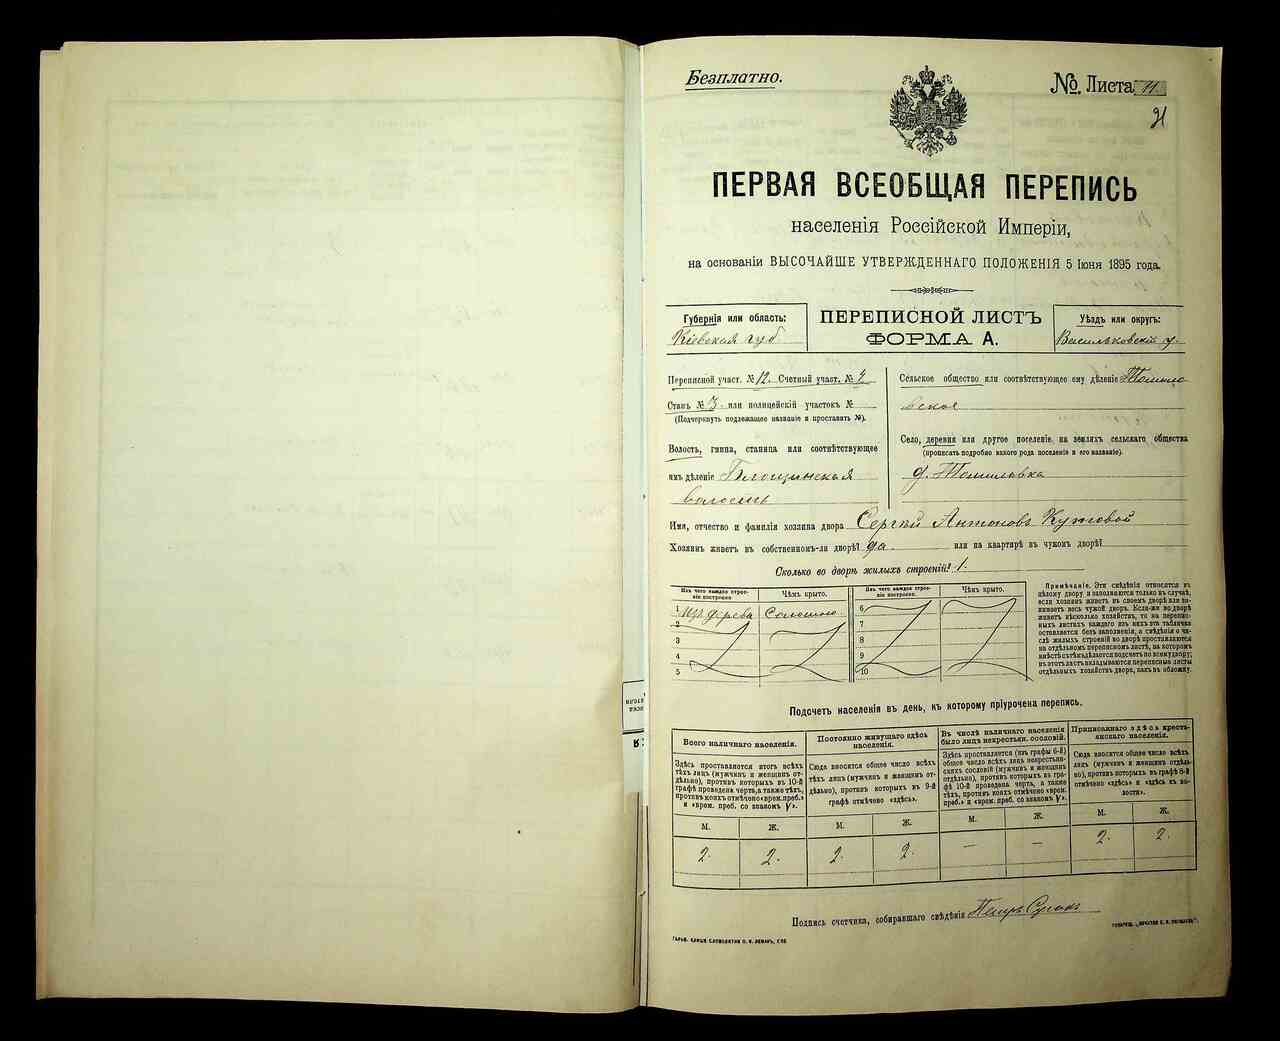 Безплатно.
№ Листа 11.
21
ПЕРВАЯ ВСЕОБЩАЯ ПЕРЕПИСЬ
населенія Россійской Имперіи,
на основаніи ВЫСОЧАЙШЕ УТВЕРЖДЕННАГО ПОЛОЖЕНІЯ 5 Іюня 1895 года.
Губернія или область:
Кіевская губ
ПЕРЕПИСНОЙ ЛИСТЪ
ФОРМА А.
Уѣздъ или округъ:
Васильковскій у.
Переписной участ. № 12. Счетный участ. № 4
Станъ № 3. или полицейскій участокъ №
(Подчеркнуть подлежащее названіе и проставить №).
Волость, гмина, станица или соотвѣтствующее
имъ дѣленіе Блощинская
волость
Сельское общество или соотвѣтствующее ему дѣленіе Томило
вское
Село, деревня или другое поселеніе на земляхъ сельскаго общества
(прописать подробно какого рода поселеніе и его названіе).
д. Томиловка
Имя, отчество и фамилія хозяина двора Сергѣй Антоновъ
Хозяинъ живетъ въ собственномъ-ли дворѣ? да. или на квартирѣ въ чужомъ дворѣ?
Сколько во дворѣ жилыхъ строеній? 1.
Изъ чего каждое строеніе построено. Чѣмъ крыто. Изъ чего каждое строеніе построено. Чѣмъ крыто.
1 изъ дерева Соломою 6
2 7
3 8
4 9
5 10
Примѣчаніе. Эти свѣдѣнія относятся къ
цѣлому двору, и заполняются только въ случаѣ,
если хозяинъ живетъ въ своемъ дворѣ или занимаетъ
весь чужой дворъ. Если-же во дворѣ
живетъ нѣсколько хозяйствъ, то на переписныхъ
листахъ каждаго изъ нихъ эта табличка
оставляется безъ заполненія, а свѣдѣнія о числѣ
жилыхъ строеній во дворѣ проставляются
на отдѣльномъ переписномъ листѣ, на которомъ
вмѣстѣ съ тѣмъ дѣлается подсчетъ по всему двору;
въ этотъ листъ вкладываются переписные листы
отдѣльныхъ хозяйствъ двора, какъ въ обложку.
Подсчетъ населенія въ день, къ которому пріурочена перепись.
Всего наличнаго населенія.
Здѣсь проставляется итогъ всѣхъ
тѣхъ лицъ (мужчинъ и женщинъ отдѣльно),
противъ которыхъ въ 10-й
графѣ проведена черта, а также тѣхъ,
противъ коихъ отмѣчено «врем. преб.»
и «врем. преб. со знакомъ V».
Постоянно живущаго здѣсь
населенія.
Сюда вносится общее число всѣхъ
тѣхъ лицъ (мужчинъ и женщинъ отдѣльно),
противъ которыхъ въ 9-й
графѣ отмѣчено «здѣсь».
Въ числѣ наличнаго населенія
было лицъ некрестьян. сословій.
Здѣсь проставляется (изъ графы 6-й)
общее число всѣхъ лицъ некрестьянскихъ
сословій (мужчинъ и женщинъ
отдѣльно), противъ которыхъ въ графѣ
10-й проведена черта, а также
тѣхъ, противъ коихъ отмѣчено «врем.
преб.» и «врем. преб. со знакомъ V».
Приписаннаго здѣсь крестьянскаго
населенія.
Сюда вносится общее число всѣхъ
лицъ (мужчинъ и женщинъ отдѣльно),
противъ которыхъ въ графѣ 8-й
отмѣчено «здѣсь» и «здѣсь къ волости».
М. Ж. М. Ж. М. Ж. М. Ж.
2. 2. 2. 2. — — 2. 2.
Подпись счетчика, собиравшаго свѣдѣнія Петръ